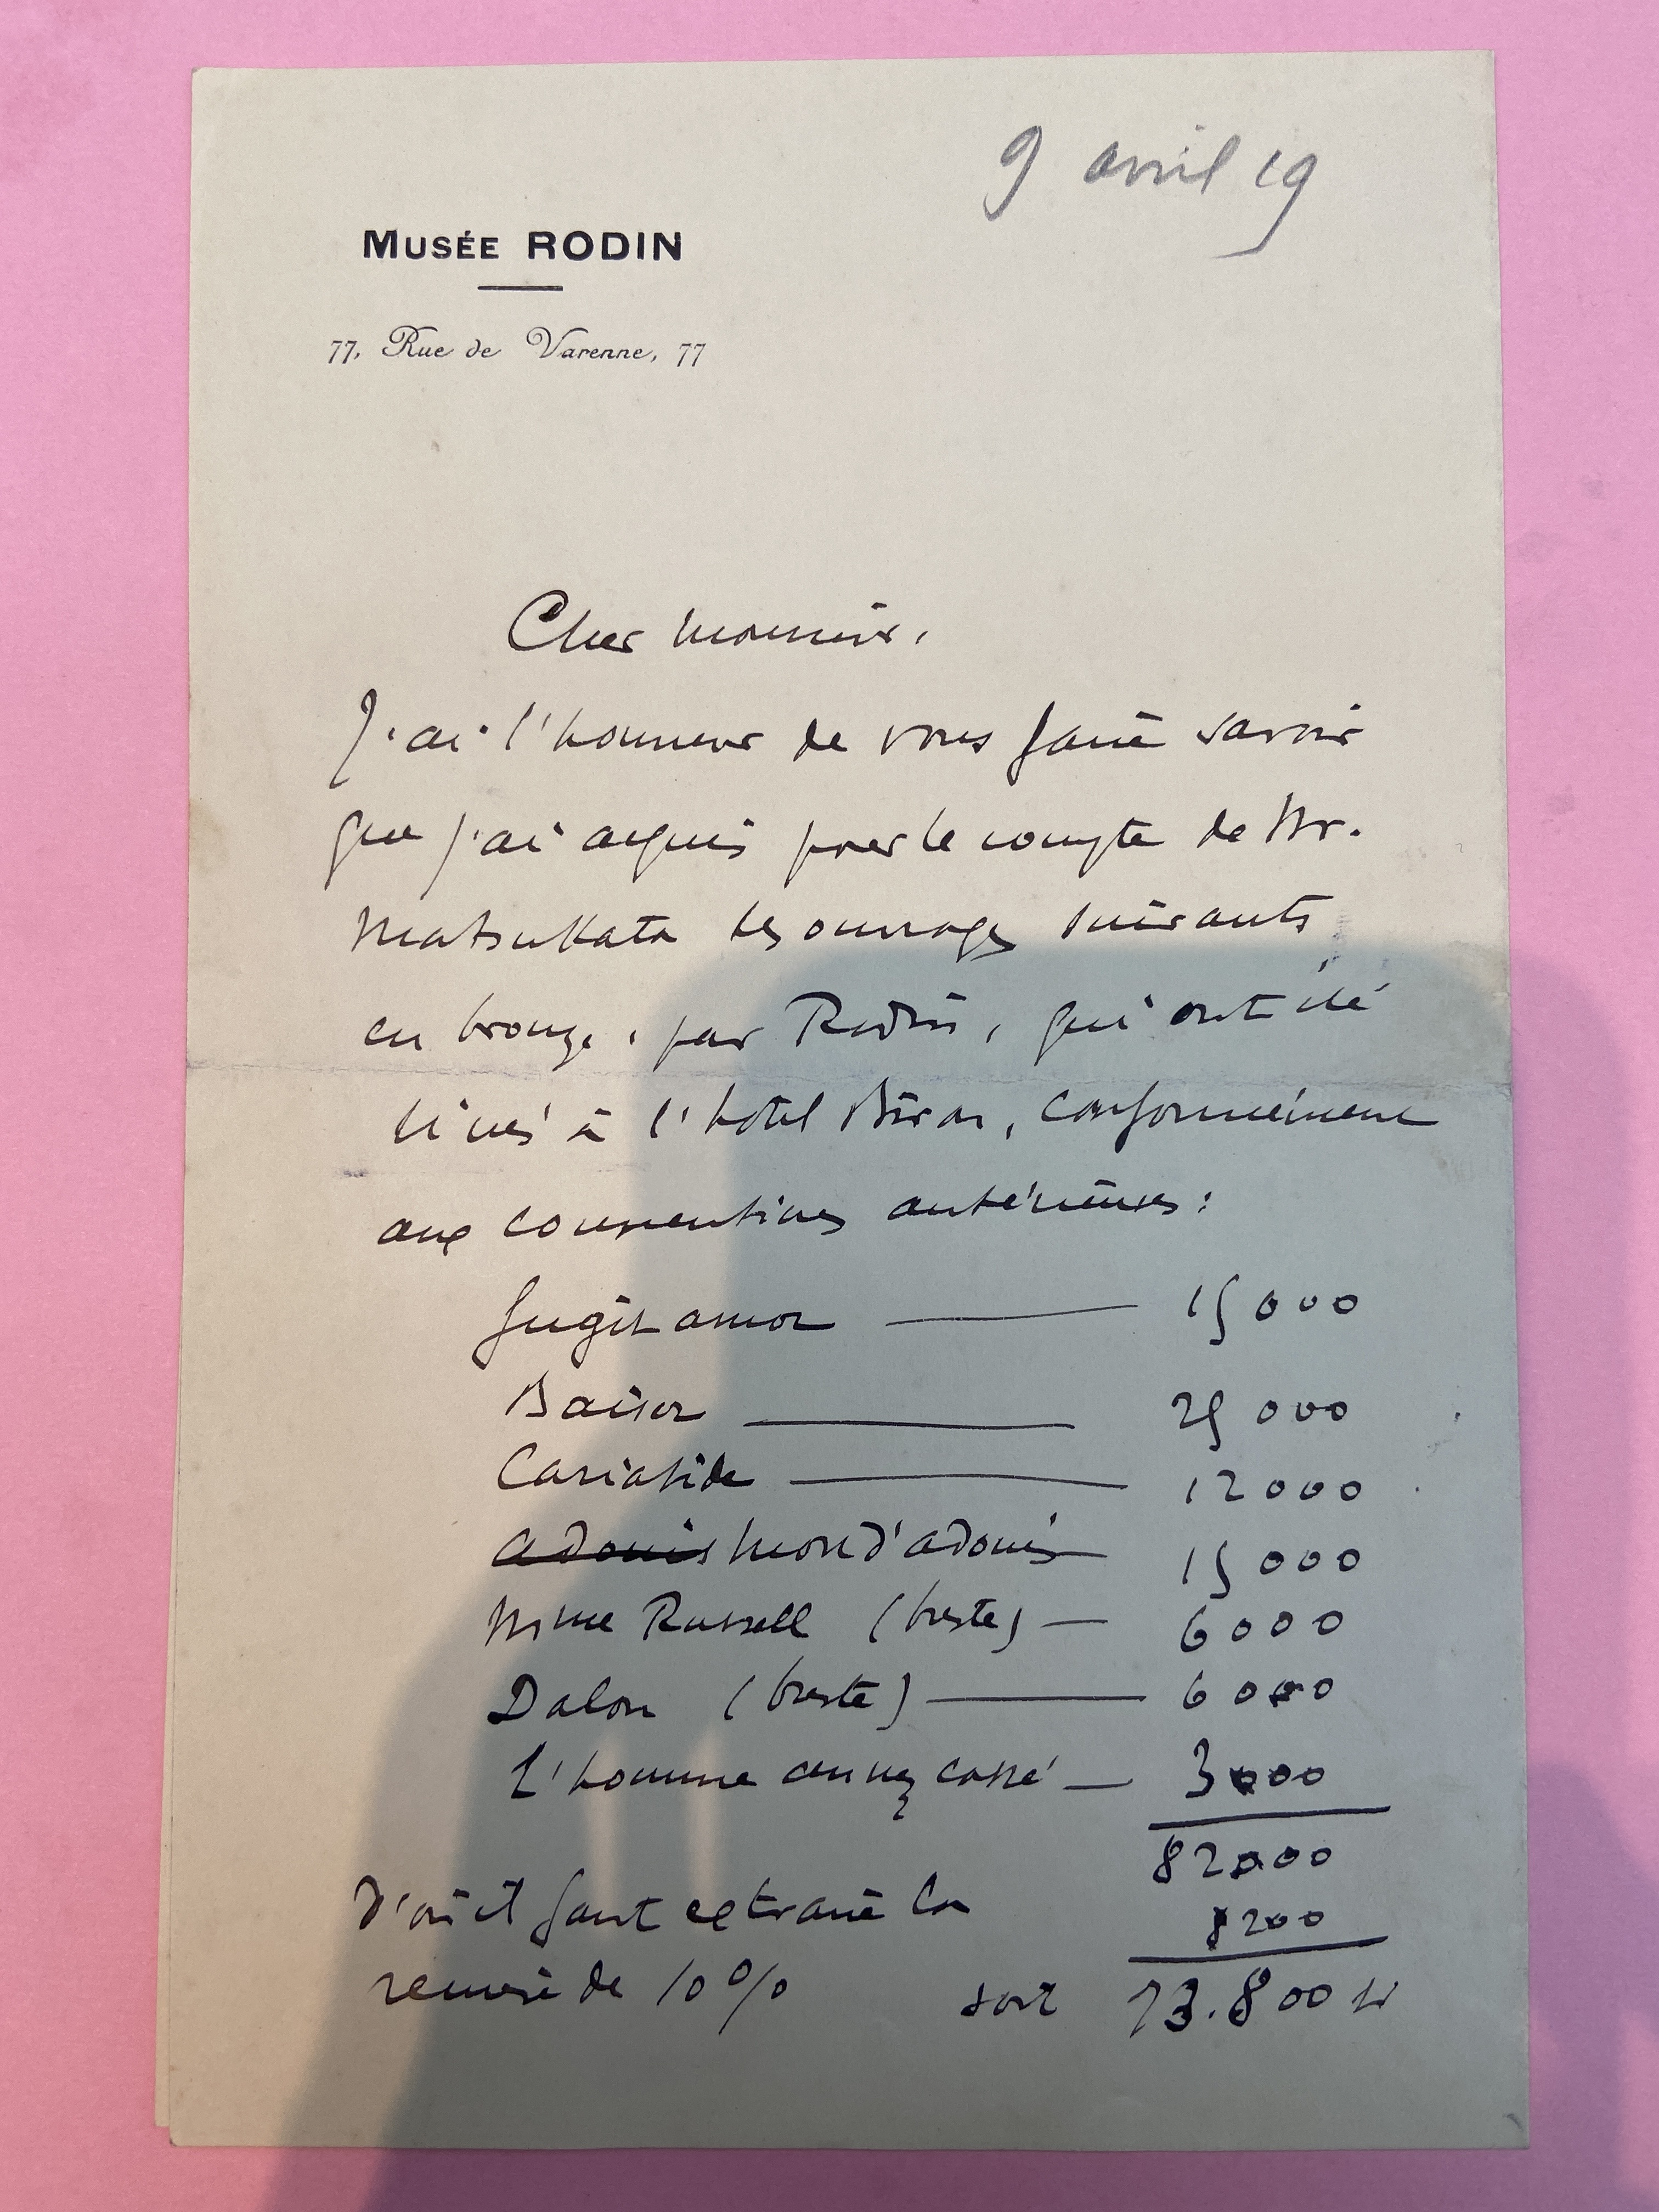 9 avril 19
MUSÉE RODIN
77, Rue de Varenne, 77
Cher monsieur,
J'ai l'honneur de vous faire savoir
que j'ai acquis pour le compte de Mr.
Matsukata les ouvrages suivants
en bronze, par Rodin, qui ont été
livrés à l'hôtel Biron, conformément
aux conventions antérieures :
Fugit amor — 15000
Baiser — 25000
Cariatide — 12000
adonis mort d'adonis — 15000
Mme Russell (buste) — 6000
Dalou (buste) — 6000
L'homme au nez cassé — 3000
82000
8200
d'où il faut extraire la
remise de 10 % soit 73.800 fr